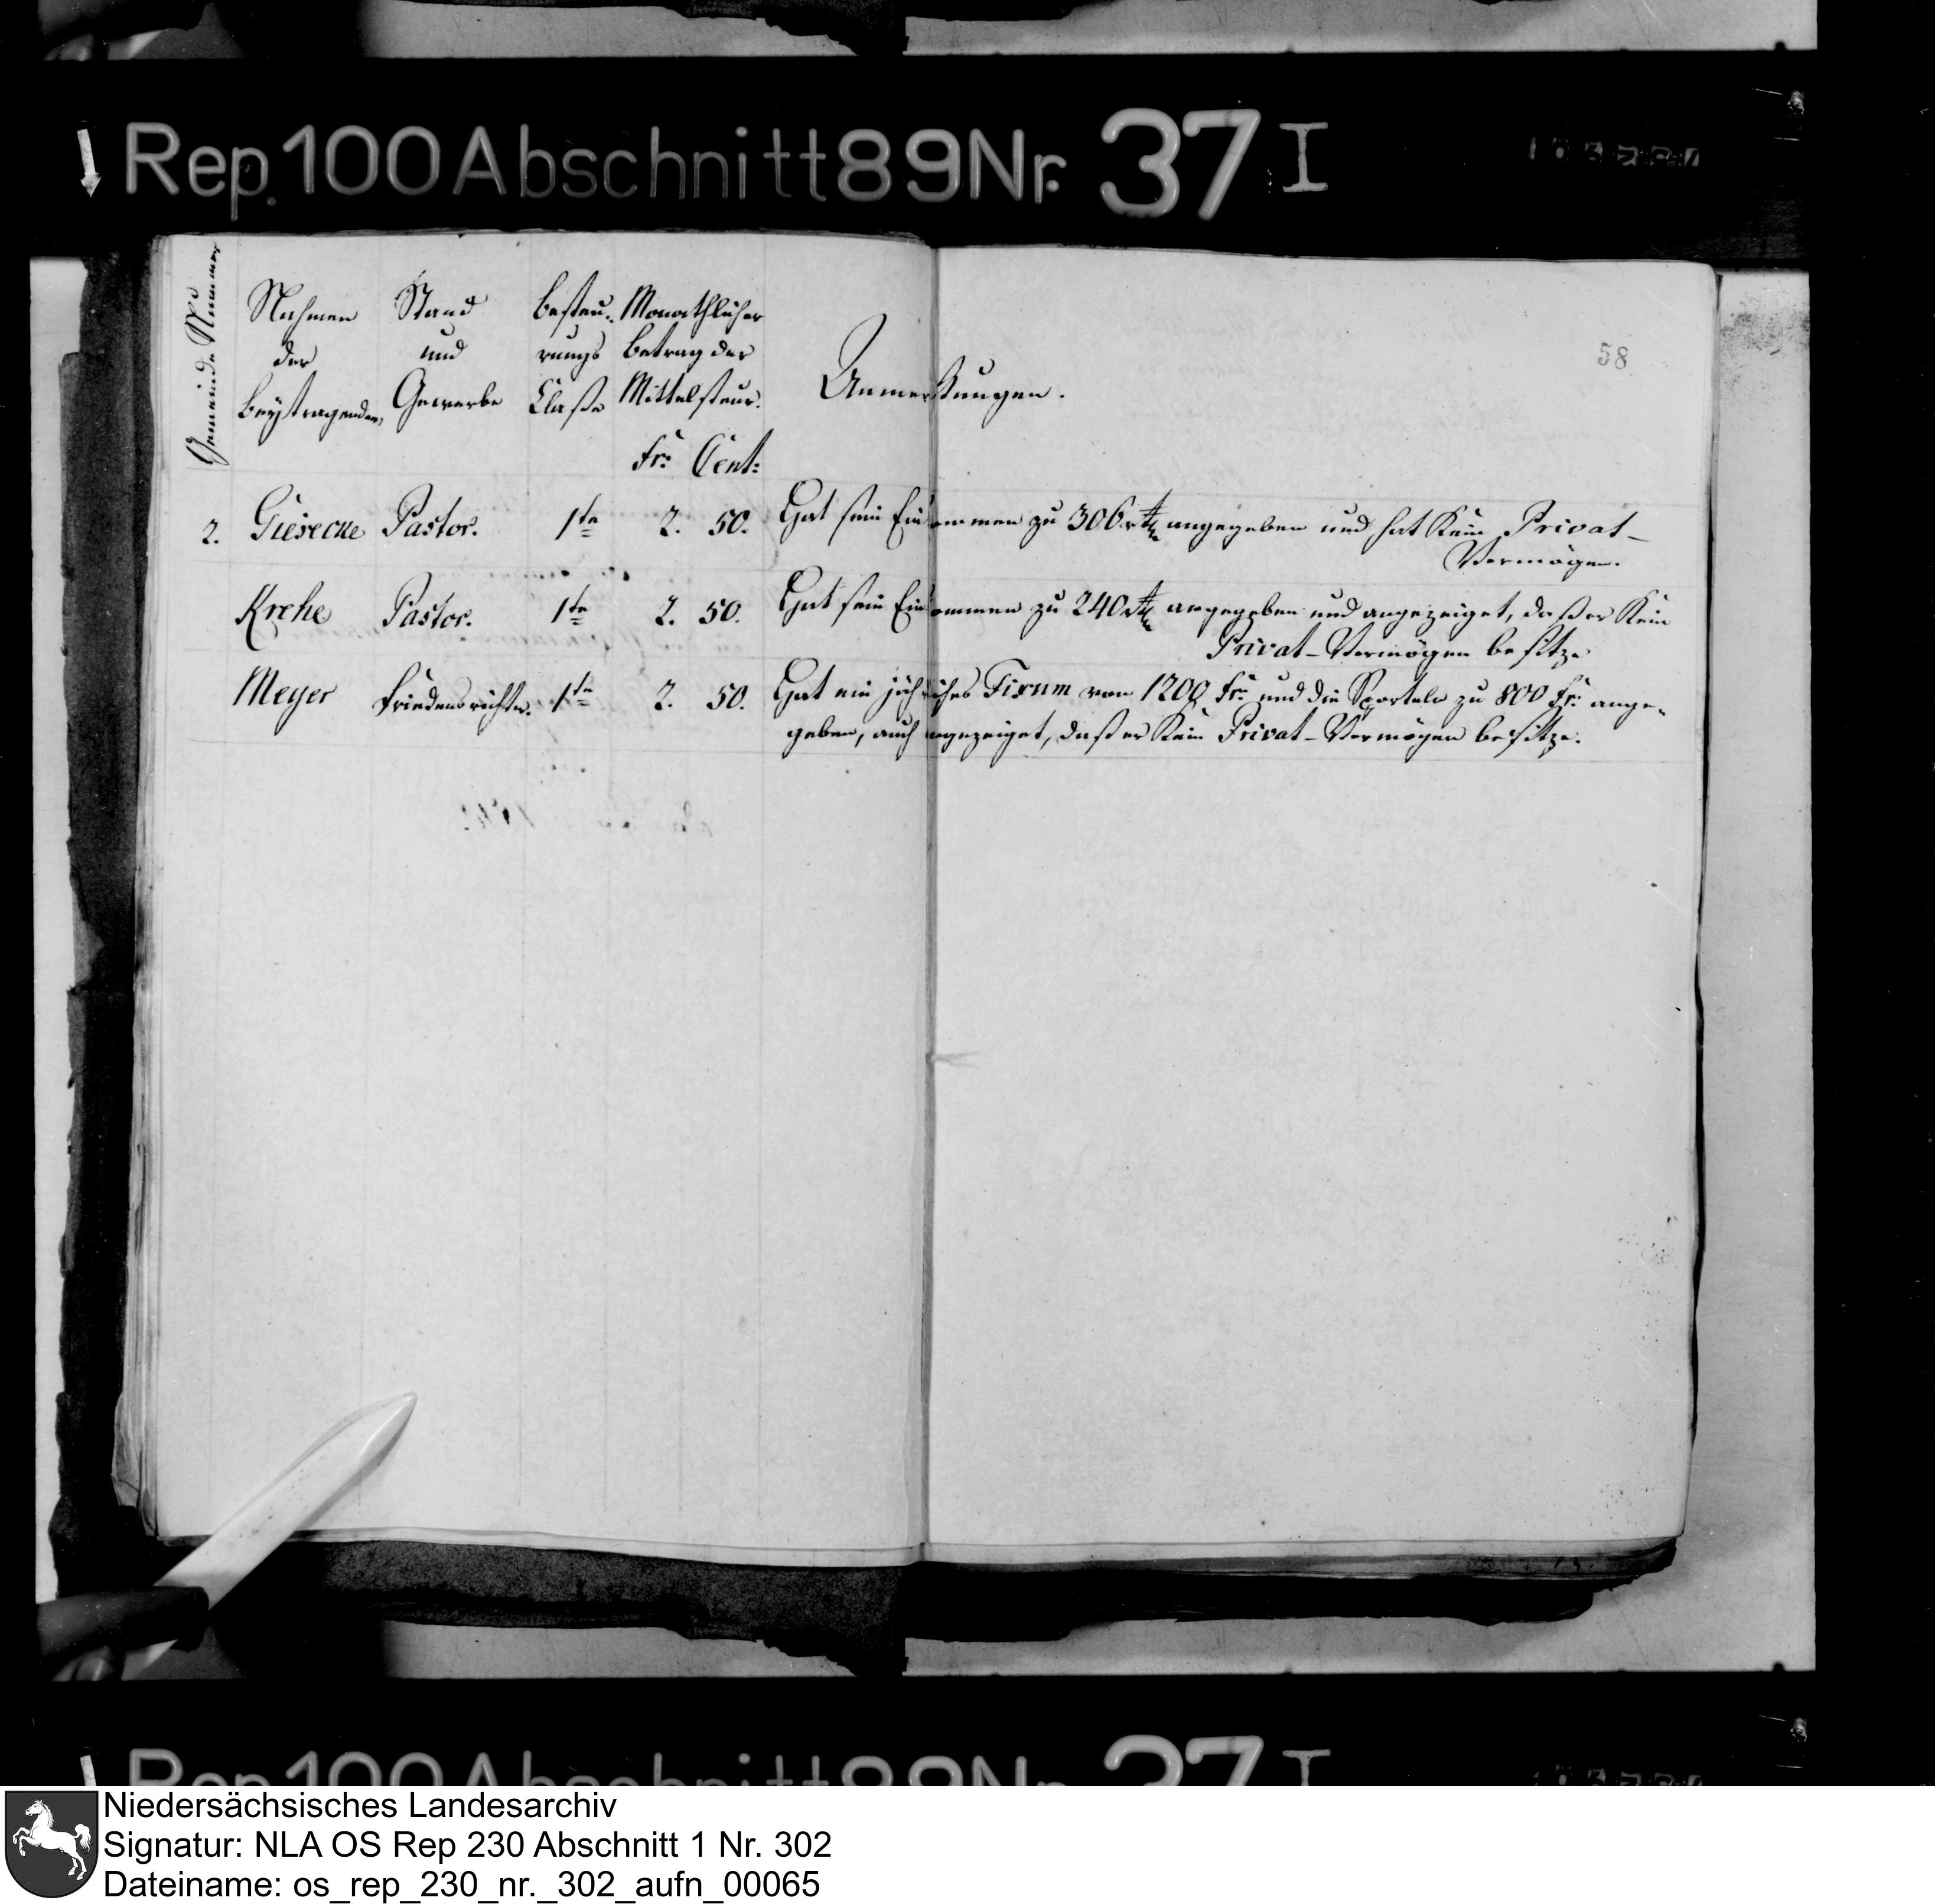 Rep. 100 Abschnitt 89 Nr. 37 I
58
Gemeinde Nummer
Nahmen der Beytragenden,
Stand und Gewerbe
Besteu: rungs Claße
Monathlicher Betrag der Mittelsteur.
Fr: Cent:
Anmerkungen.
2. Giesecke Pastor. 1te 2. 50. Hat sein Einkommen zu 306 rt angegeben und hat kein Privat-
Vermögen.
Krehe Pastor. 1te 2. 50. Hat sein Einkommen zu 240 rt angegeben und angezeiget, daß er kein
Privat-Vermögen besitze
Meyer Friedensrichter. 1te 2. 50. Hat ein jährliches Fixum von 1200 Fr: und die Sporteln zu 800 Fr: ange-
geben, auch angezeiget, daß er kein Privat-Vermögen besitze.
Rep. 100 Abschnitt 89 Nr. 37 I
Niedersächsisches Landesarchiv
Signatur: NLA OS Rep 230 Abschnitt 1 Nr. 302
Dateiname: os_rep_230_nr._302_aufn_00065